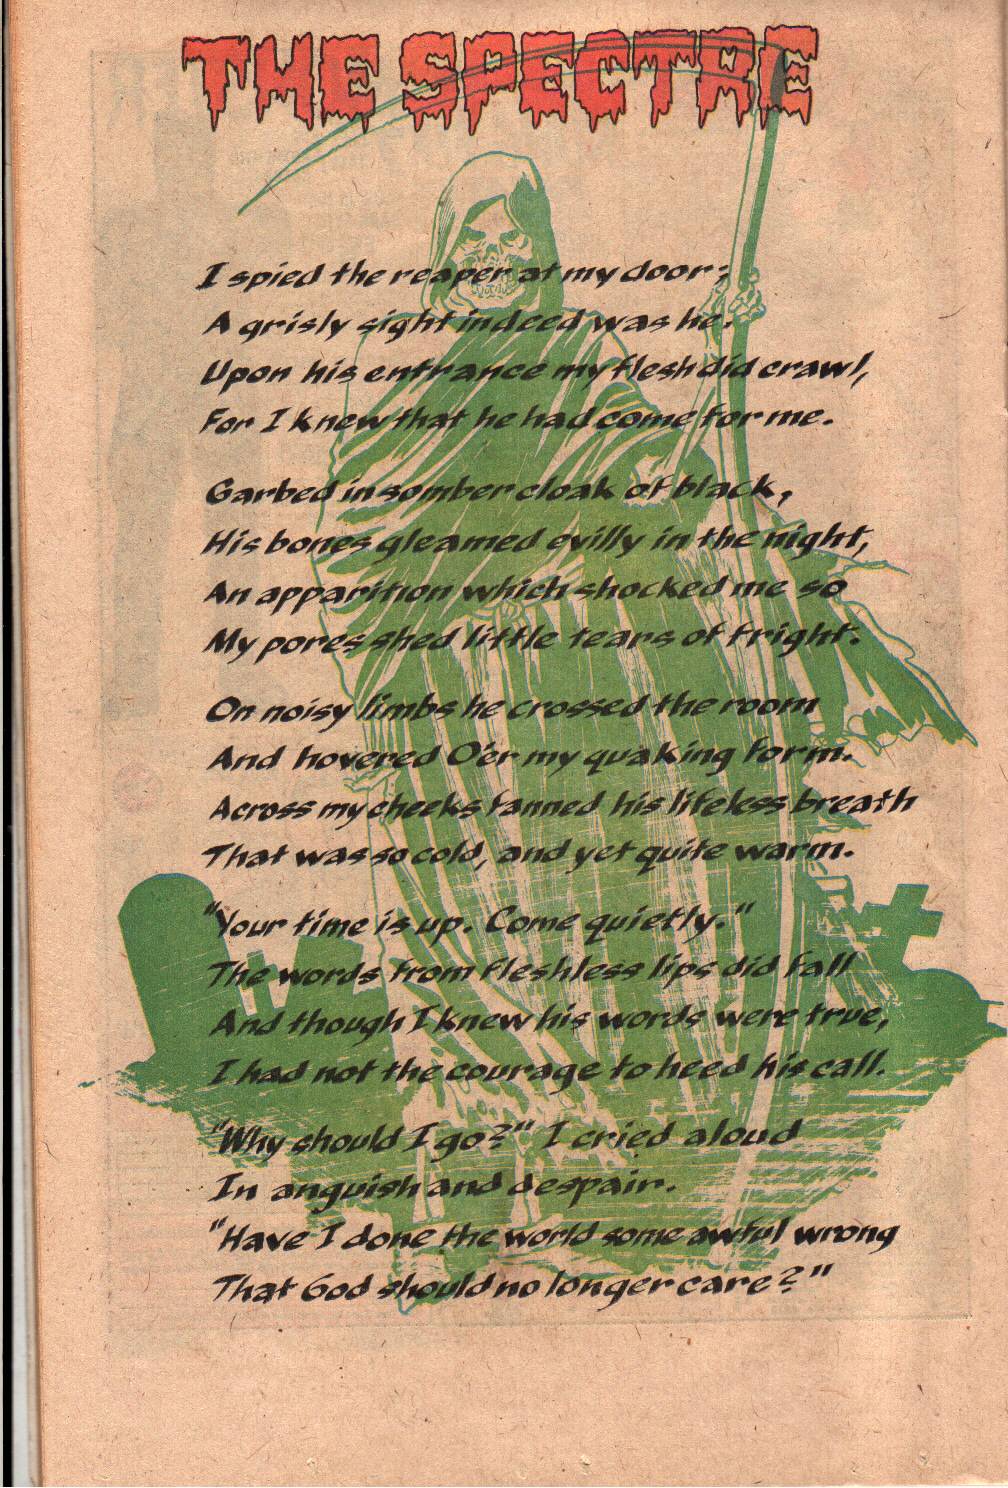 THE SPECTRE
I spied the reaper at my door;
A grisly sight indeed was he.
Upon his entrance my flesh did crawl,
For I knew that he had come for me.
Garbed in somber cloak of black,
His bones gleamed evilly in the night,
An apparition which shocked me so
My pores shed little tears of fright.
On noisy limbs he crossed the room
And hovered O'er my quaking form.
Across my cheeks fanned his lifeless breath
That was so cold, and yet quite warm.
"Your time is up. Come quietly."
The words from fleshless lips did fall
And though I knew his words were true,
I had not the courage to heed his call.
"Why should I go?" I cried aloud
In anguish and despair.
"Have I done the world some awful wrong
That God should no longer care?"